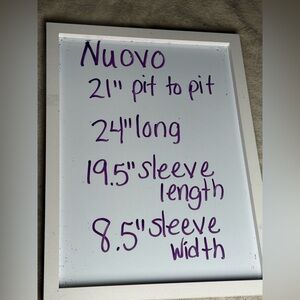 Nuovo
21" pit to pit
24" long
19.5" sleeve
length
8.5" sleeve
width